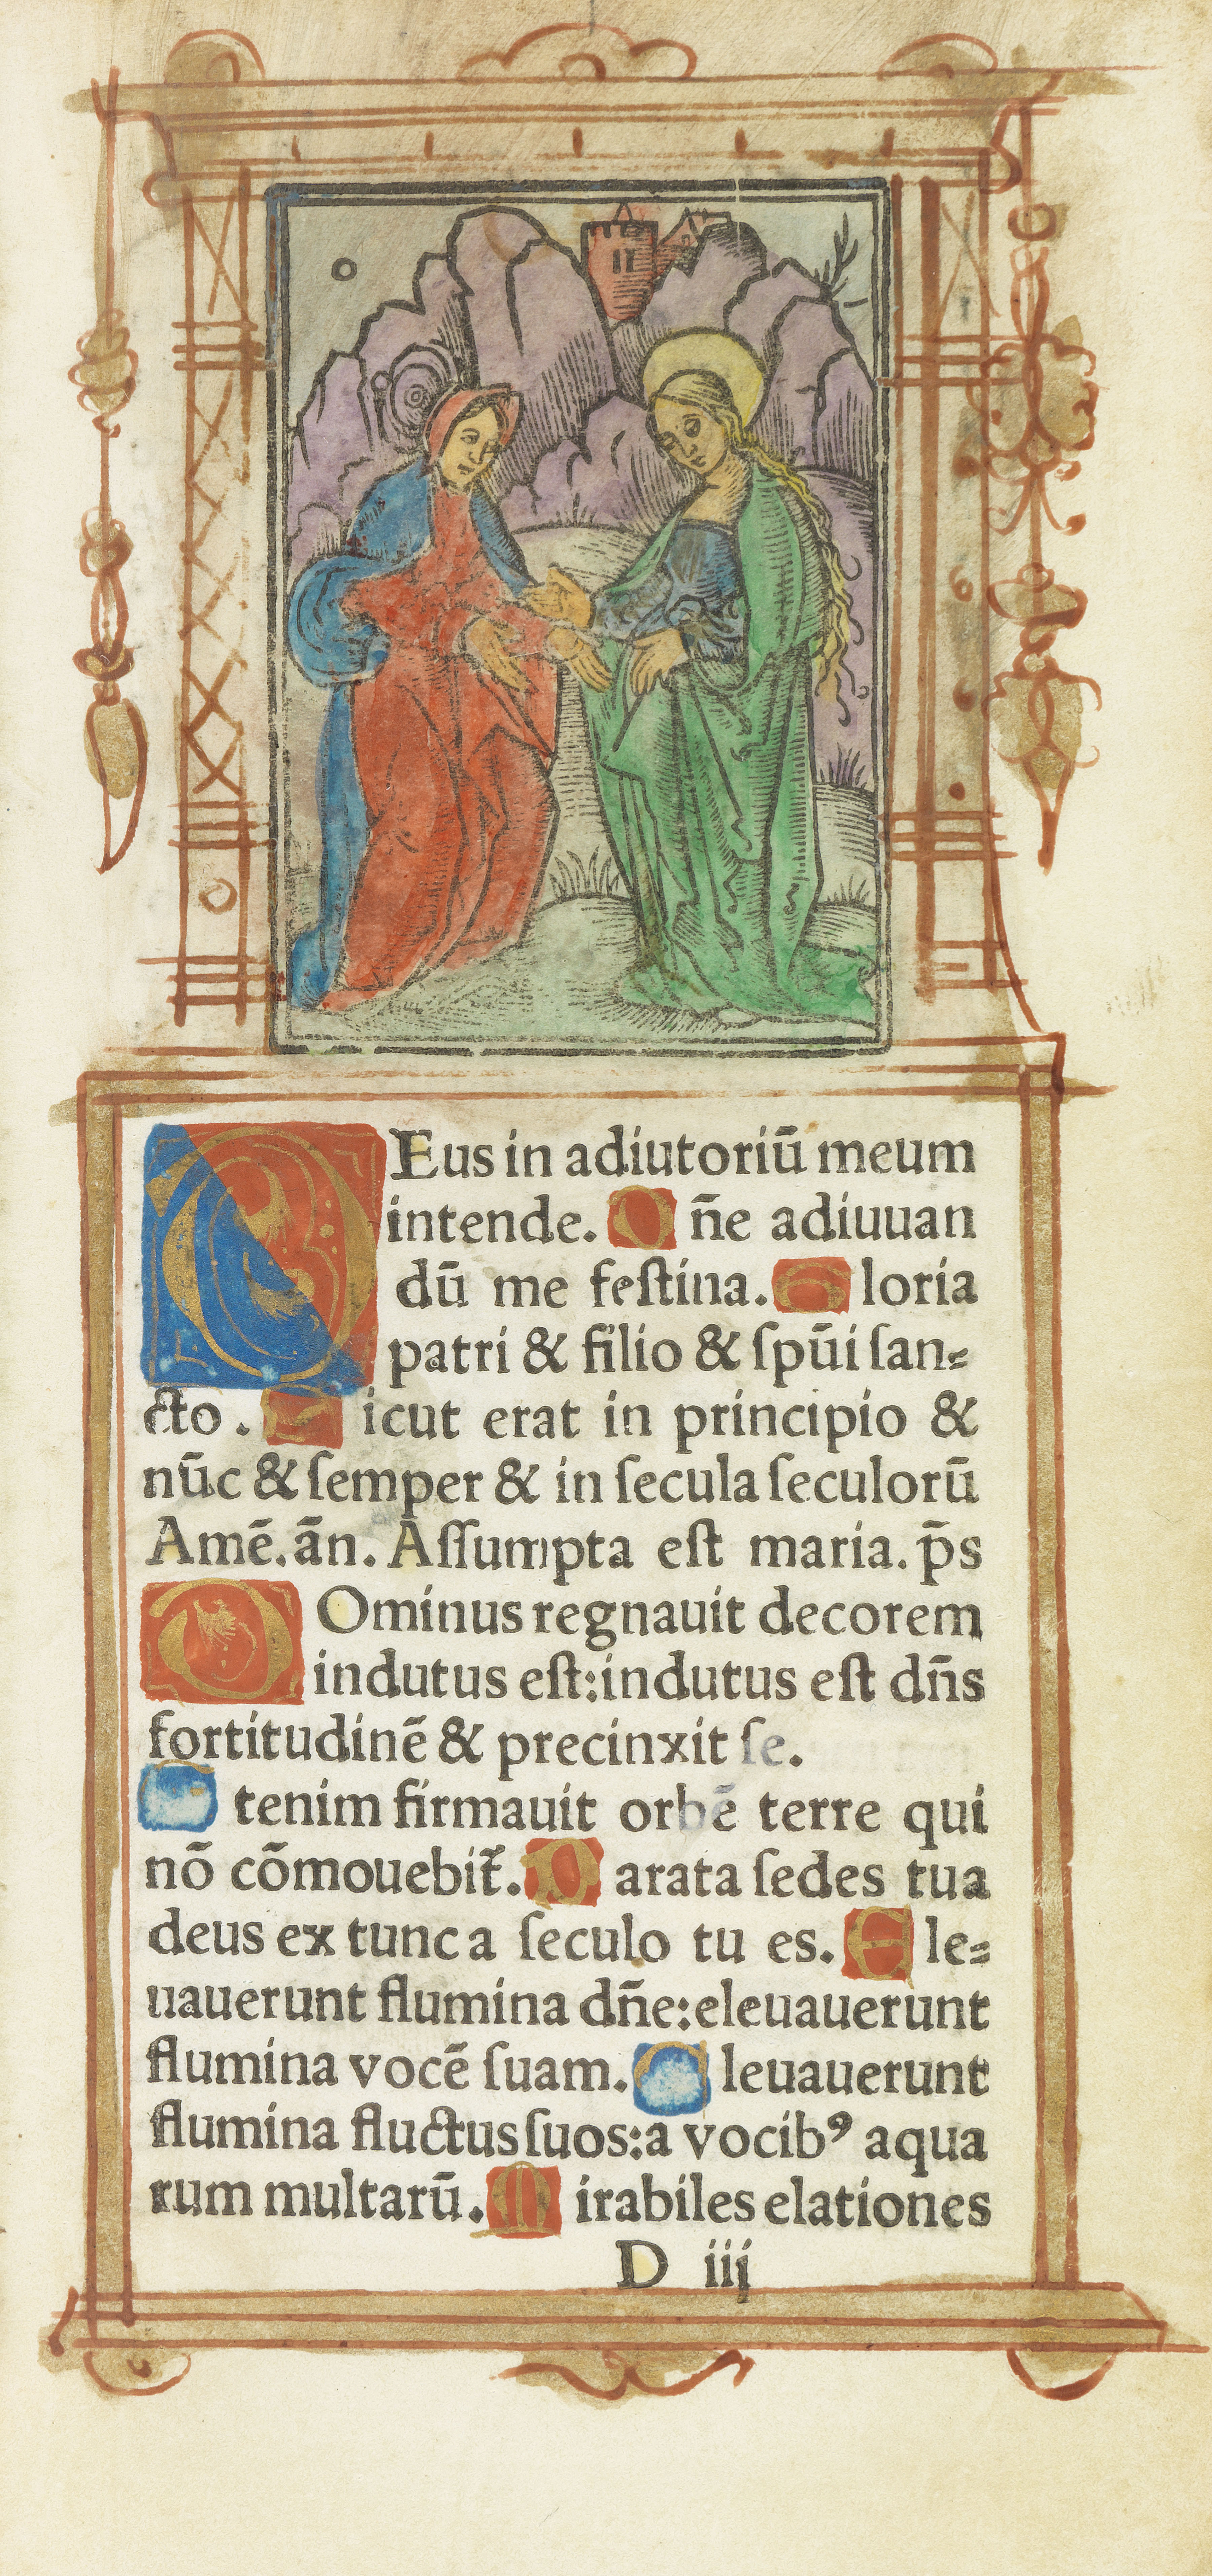 DEus in adiutoriū meum
intende. D ñe adiuuan
dū me feſtina. G loria
patri & filio & ſpūi ſan⸗
cto. S icut erat in principio &
nūc & ſemper & in ſecula ſeculorū
Amē. ān. Aſſumpta eſt maria. p̄s
DOminus regnauit decorem
indutus eſt: indutus eſt dn̄s
fortitudinē & precinxit ſe.
E tenim firmauit orbē terre qui
nō cōmouebit̄. P arata ſedes tua
deus ex tunc a ſeculo tu es. E le⸗
uauerunt flumina dn̄e: eleuauerunt
flumina vocē ſuam. E leuauerunt
flumina fluctus ſuos: a vocibꝰ aqua
rum multarū. M irabiles elationes
D iij